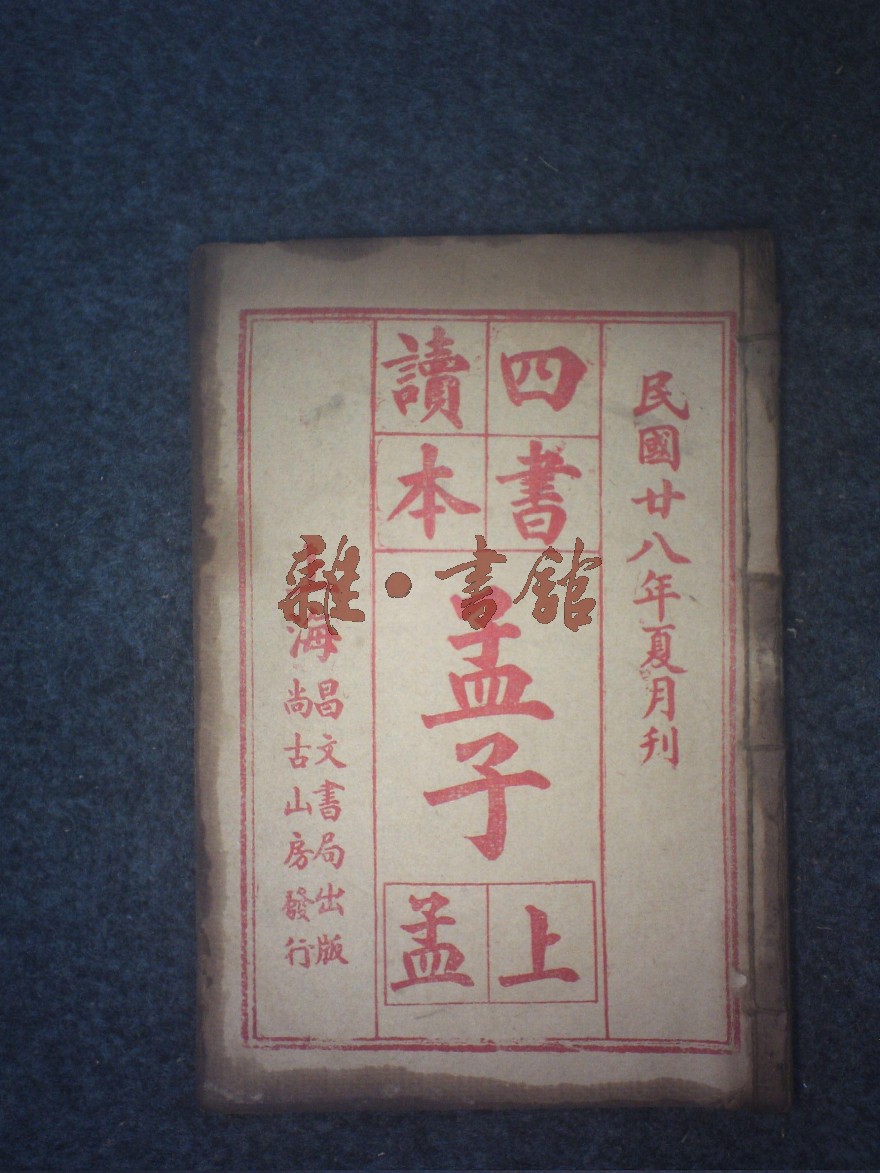 民國廿八年夏月刋
四書
讀本
孟子
上
孟
海
昌文書局出版
尚古山房發行
雜·書館